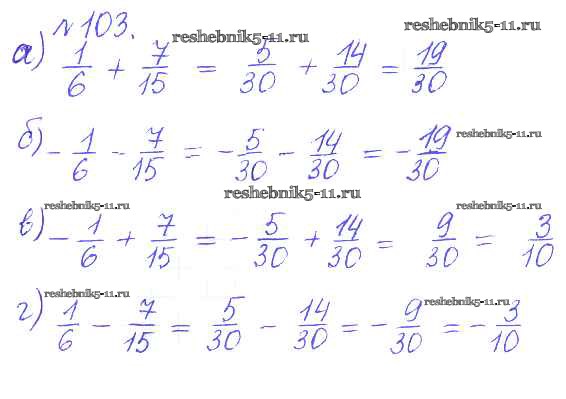 №103. reshebnik5-11.ru reshebnik5-11.ru
а) 1/6 + 7/15 = 5/30 + 14/30 = 19/30
б) - 1/6 - 7/15 = - 5/30 - 14/30 = - 19/30 reshebnik5-11.ru
reshebnik5-11.ru reshebnik5-11.ru reshebnik5-11.ru
в) - 1/6 + 7/15 = - 5/30 + 14/30 = 9/30 = 3/10
reshebnik5-11.ru reshebnik5-11.ru
г) 1/6 - 7/15 = 5/30 - 14/30 = - 9/30 = - 3/10